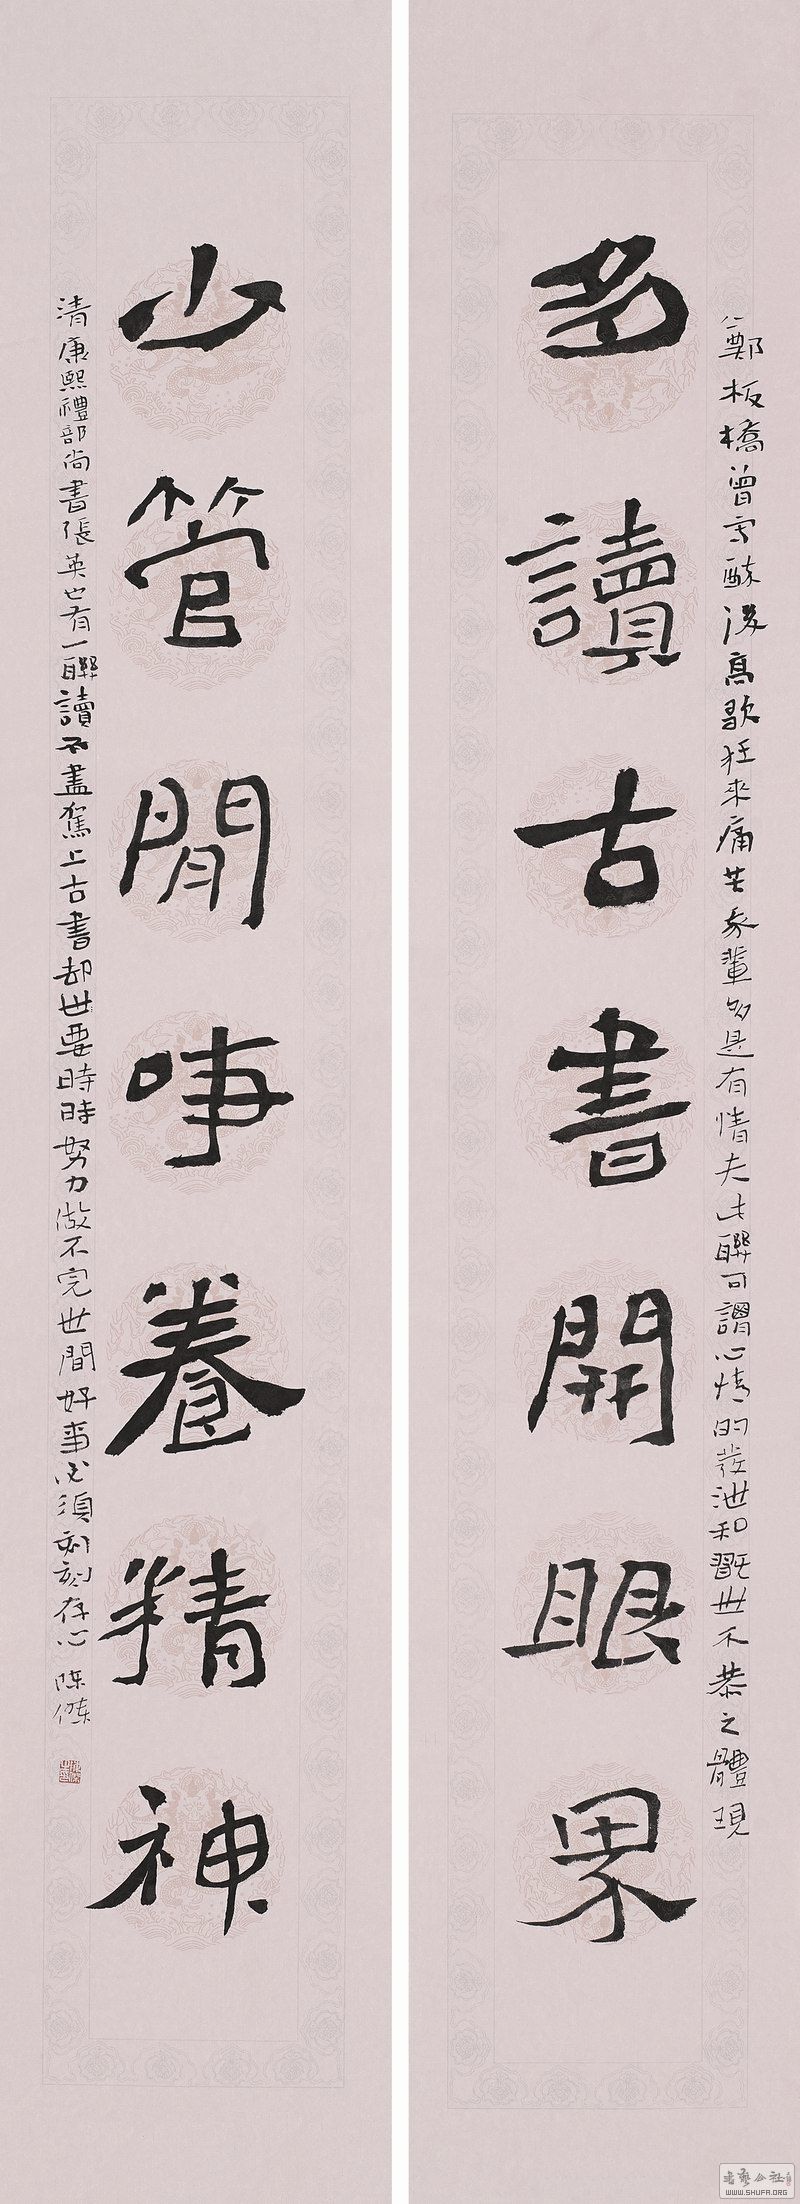 多讀古書開眼界
鄭板橋曾寫酥後高歌狂來痛苦我輩多是有情夫此聯可謂心情的發泄和翫世不恭之體現
少管閒事養精神
清康熙禮部尚書張英也有一聯讀不盡架上古書却世要時時努力做不完世間好事必須刻刻存心 陈傑
書藝公社
WWW.SHUFA.ORG